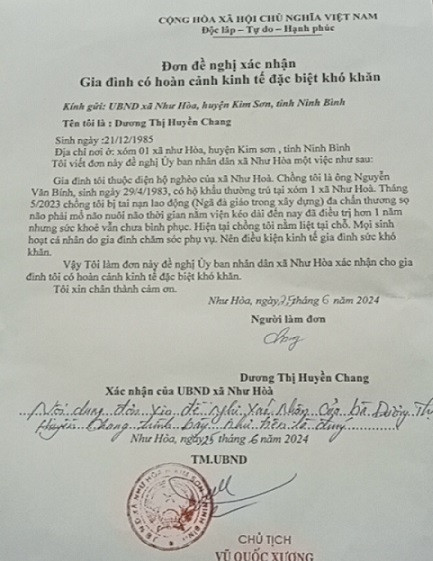 CỘNG HÒA XÃ HỘI CHỦ NGHĨA VIỆT NAM
Độc lập – Tự do – Hạnh phúc
Đơn đề nghị xác nhận
Gia đình có hoàn cảnh kinh tế đặc biệt khó khăn
Kính gửi: UBND xã Như Hòa, huyện Kim Sơn, tỉnh Ninh Bình
Tên tôi là : Dương Thị Huyền Chang
Sinh ngày :21/12/1985
Địa chỉ nơi ở: xóm 01 xã như Hòa, huyện Kim sơn , tỉnh Ninh Bình
Tôi viết đơn này đề nghị Ủy ban nhân dân xã Như Hòa một việc như sau:
Gia đình tôi thuộc diện hộ nghèo của xã Như Hoà. Chồng tôi là ông Nguyễn
Văn Bính, sinh ngày 29/4/1983, có hộ khẩu thường trú tại xóm 1 xã Như Hoà. Tháng
5/2023 chồng tôi bị tai nạn lao động (Ngã đà giáo trong xây dựng) đa chấn thương sọ
não phải mổ não nuôi não thời gian nằm viện kéo dài đến nay đã điều trị hơn 1 năm
nhưng sức khoẻ vẫn chưa bình phục. Hiện tại chồng tôi nằm liệt tại chỗ. Mọi sinh
hoạt cá nhân do gia đình chăm sóc phụ vụ. Nên điều kiện kinh tế gia đình sức khó
khăn.
Vậy Tôi làm đơn này đề nghị Ủy ban nhân dân xã Như Hòa xác nhận cho gia
đình tôi có hoàn cảnh kinh tế đặc biệt khó khăn.
Tôi xin chân thành cảm ơn.
Như Hòa, ngày 25 tháng 6 năm 2024
Người làm đơn
Chang
Dương Thị Huyền Chang
Xác nhận của UBND xã Như Hòa
Nội dung đơn xin đề nghị xác nhận của bà Dương Thị
Huyền Chang trình bày như trên là đúng
Như Hòa, ngày 25 tháng 6 năm 2024
TM.UBND
CHỦ TỊCH
VŨ QUỐC XƯƠNG